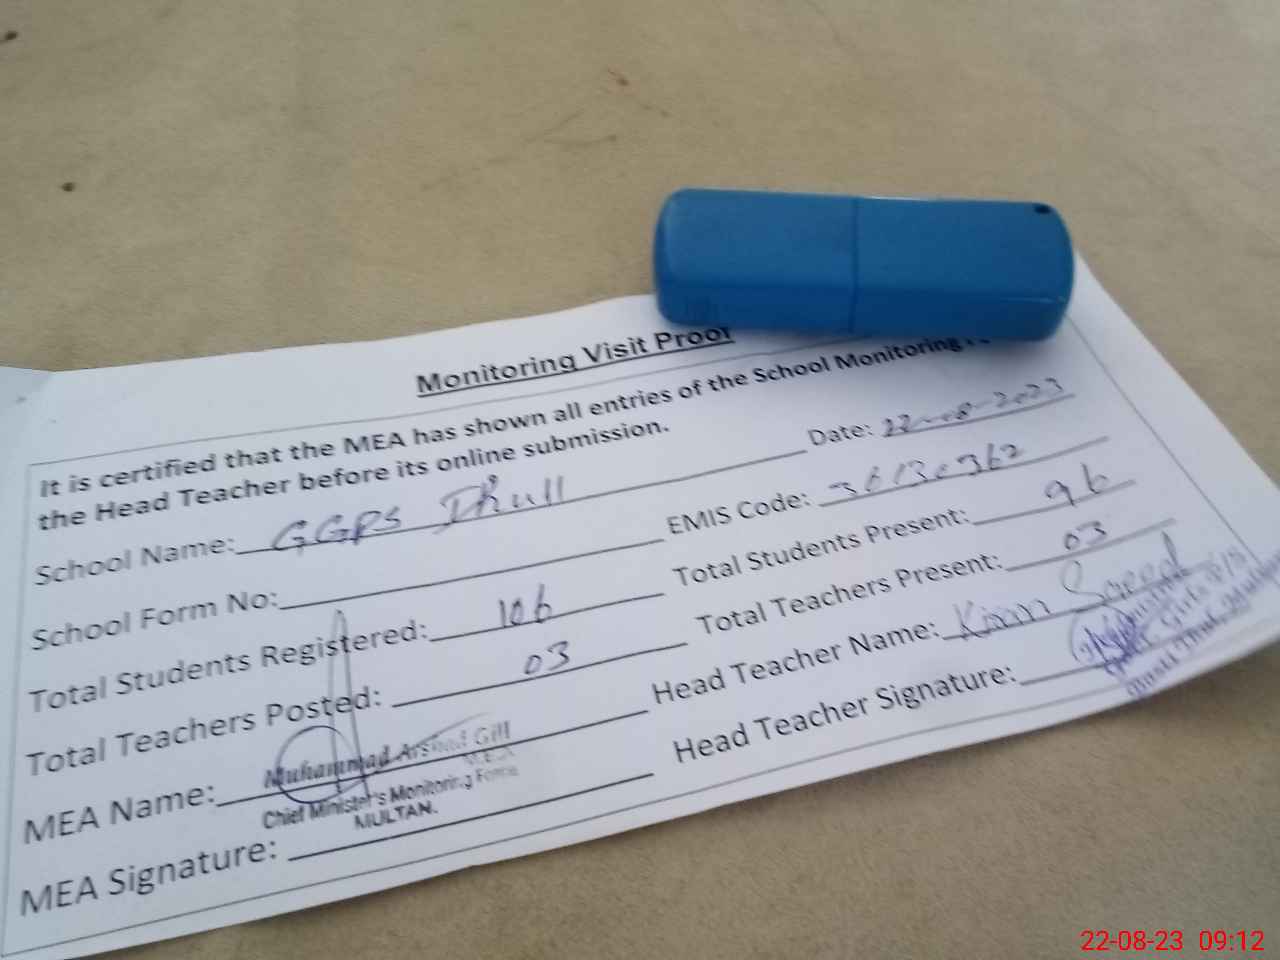 Monitoring Visit Proof
It is certified that the MEA has shown all entries of the School Monitoring
the Head Teacher before its online submission.
School Name: GGPS Dhull Date: 22-08-2023
School Form No: EMIS Code: 36130362
Total Students Registered: 106 Total Students Present: 96
Total Teachers Posted: 03 Total Teachers Present: 03
MEA Name: Muhammad Arshad Gill Head Teacher Name: Kiran Saeed
M.E.A
Chief Minister's Monitoring Force
MULTAN.
MEA Signature: Head Teacher Signature:
22-08-23 09:12